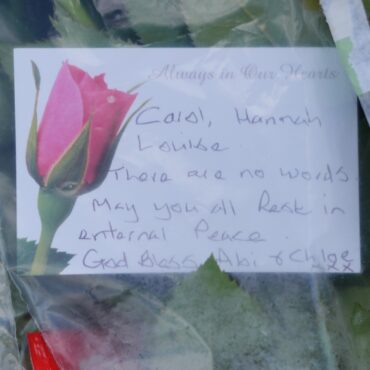 Always in Our Hearts
Carol, Hannah
Louise.
There are no words.
May you all Rest in
enternal Peace.
God Bless Abi & Chloe
xx